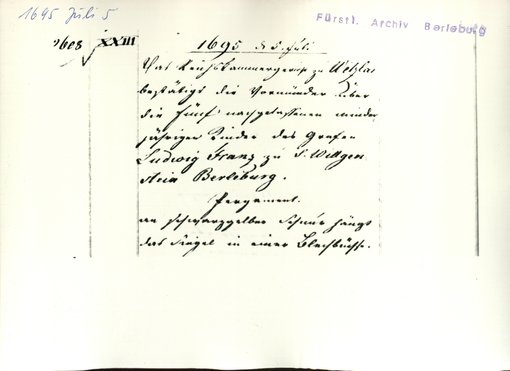 1695 Juli 5
Fürstl. Archiv Berleburg
2603 XXIII
1695 d 5. Juli
Das Reichskammergericht zu Wetzlar
bestätigt die Vormünder über
die fünf nachgelassenen minder
jährigen Kinder des Grafen
Ludwig Franz zu S. Wittgen
stein Berleburg.
Pergament.
an schwarzgelber Schnur hängt
das Siegel in einer Blechbüchse.